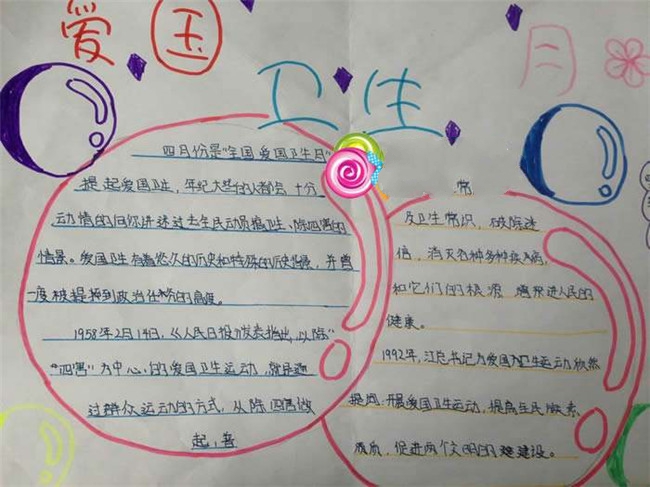 爱国
卫生
月
四月份是“全国爱国卫生月”
提起爱国卫生，年纪大些的人都会十分
动情的向你讲述过去全民动员搞卫生、除四害的
情景。爱国卫生有着悠久的历史和特殊的历史
一度被提
到政治任务的高度。
1958年2月14日，《人民日报》发表指出，以除“
“四害”为中心的爱国卫生运动，
过群众运动的方式，从除四害做
起，
常
及卫生常识，破除迷
信，消灭各种多种疾病，
和它们的根源，
人民的
健康。
1992年，江总书记为爱国卫生运动欣然
提词：开展爱国卫生运动，提高全民族素
质，促进两个文明的建设。